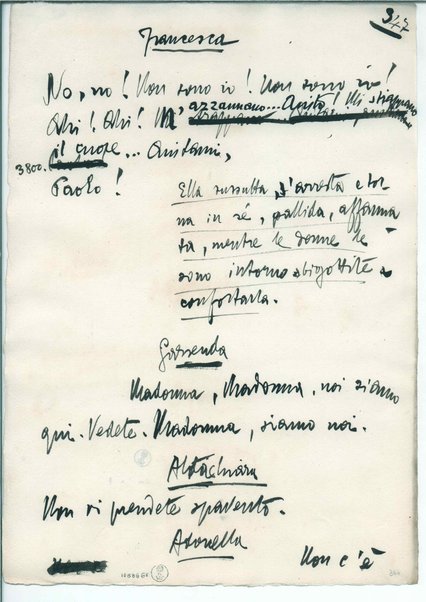 347
Francesca
No, no! Non sono io! Non sono io!
Ahi! Ahi! M'azzannano... Aiuto! Mi strappano
3800. il cuore... Aiutami,
Paolo!
Ella sussulta, s'arresta e tor
na in sé, pallida, affanna
ta, mentre le donne le
sono intorno sbigottite a
confortarla.
Garsenda
Madonna, Madonna, noi siamo
qui. Vedete. Madonna, siamo noi.
Altichiara
Non vi prendete spavento.
Adonella
Non c'è